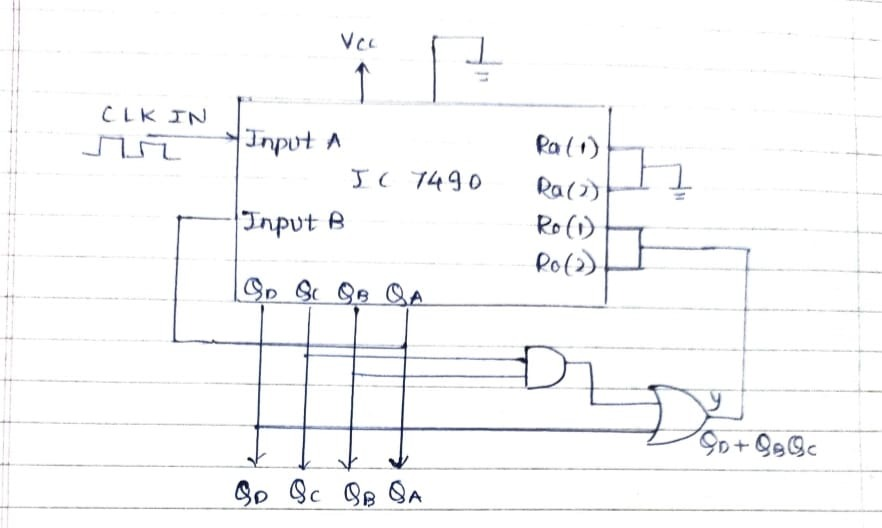 Vcc
CLK IN
Input A
Ra(1)
IC 7490
Ra(2)
Input B
Ro(1)
Ro(2)
QD QC QB QA
y
QD + QBQC
QD QC QB QA